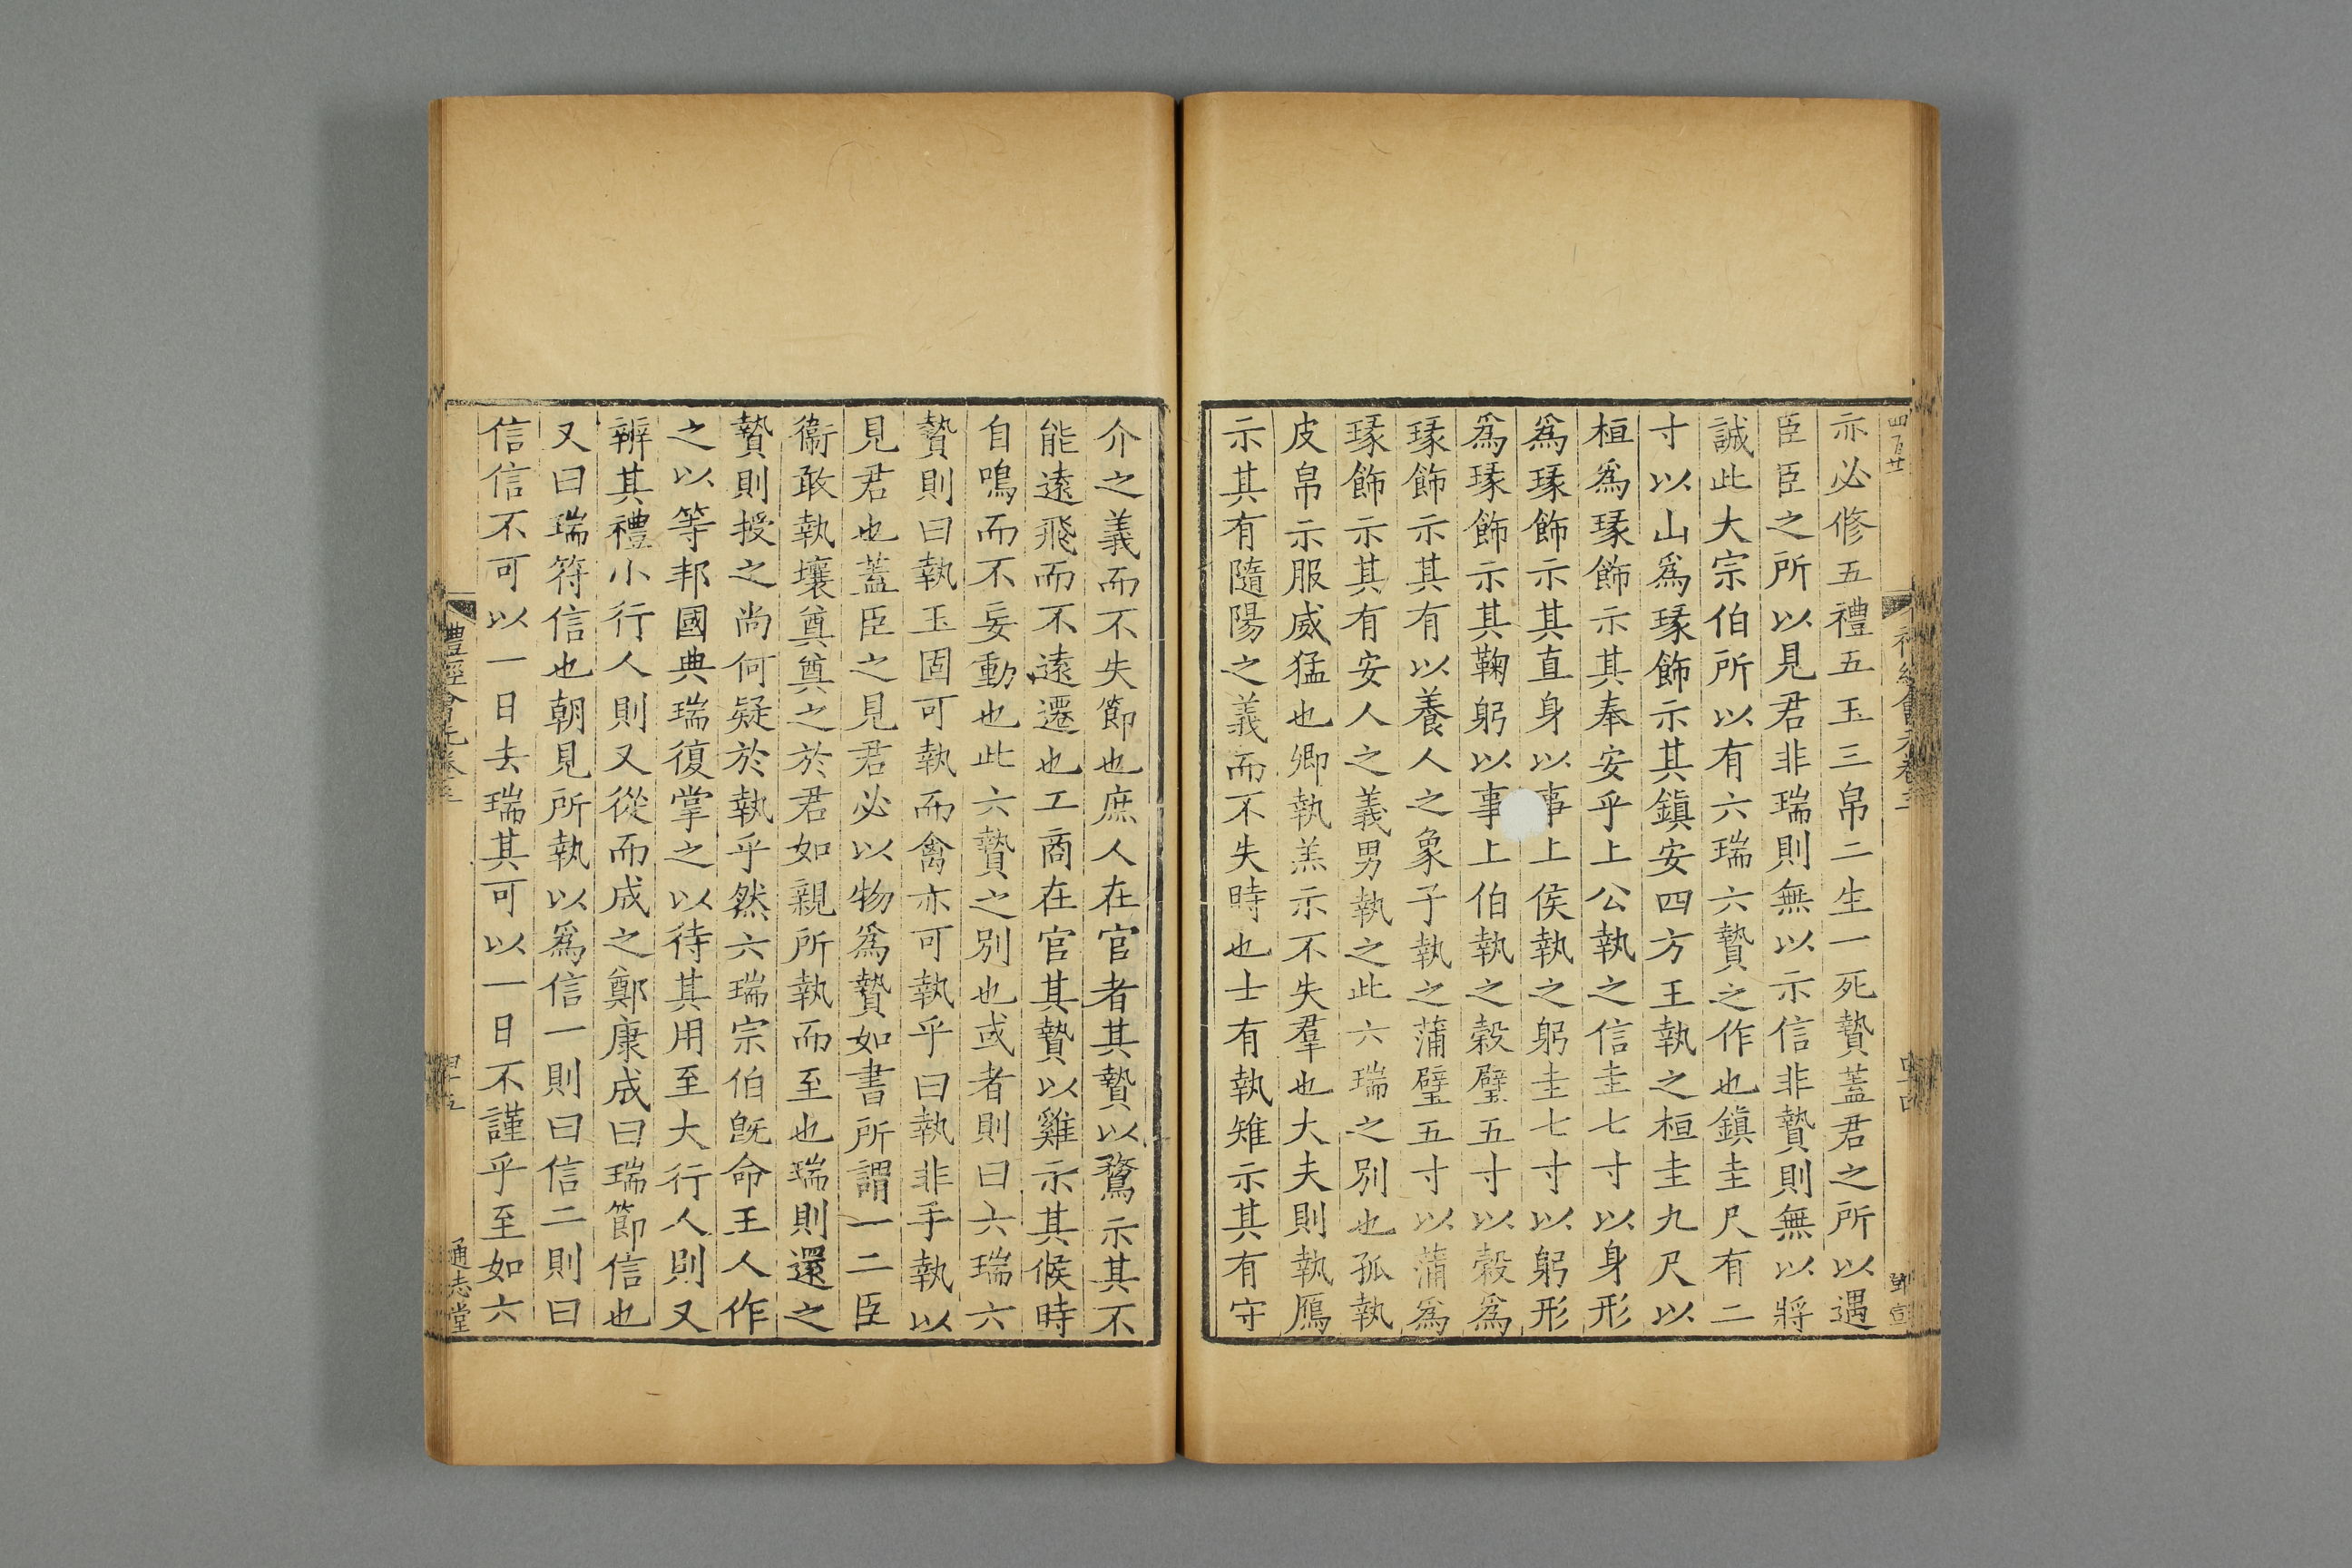 四百廿
亦必修五禮五玉三帛二生一死贄蓋君之所以遇
臣臣之所以見君非瑞則無以示信非贄則無以將
誠此大宗伯所以有六瑞六贄之作也鎮圭尺有二
寸以山爲瑑飾示其鎮安四方王執之桓圭九尺以
桓爲瑑飾示其奉安乎上公執之信圭七寸以身形
爲瑑飾示其直身以事上侯執之躬圭七寸以躬形
爲瑑飾示其鞠躬以事上伯執之穀璧五寸以穀爲
瑑飾示其有以養人之象子執之蒲璧五寸以蒲爲
瑑飾示其有安人之義男執之此六瑞之別也孤執
皮帛示服威猛也卿執羔示不失羣也大夫則執鴈
示其有隨陽之義而不失時也士有執雉示其有守
介之義而不失節也庶人在官者其贄以鶩示其不
能遠飛而不遠遷也工商在官其贄以雞示其候時
自鳴而不妄動也此六贄之別也或者則曰六瑞六
贄則曰執玉固可執而禽亦可執乎曰執非手執以
見君也蓋臣之見君必以物爲贄如書所謂一二臣
衞敢執壤奠奠之於君如親所執而至也瑞則還之
贄則授之尚何疑於執乎然六瑞宗伯旣命王人作
之以等邦國典瑞復掌之以待其用至大行人則又
辨其禮小行人則又從而成之鄭康成曰瑞節信也
又曰瑞符信也朝見所執以爲信一則曰信二則曰
信信不可以一日去瑞其可以一日不謹乎至如六
禮經會元卷三
四十五
通志堂